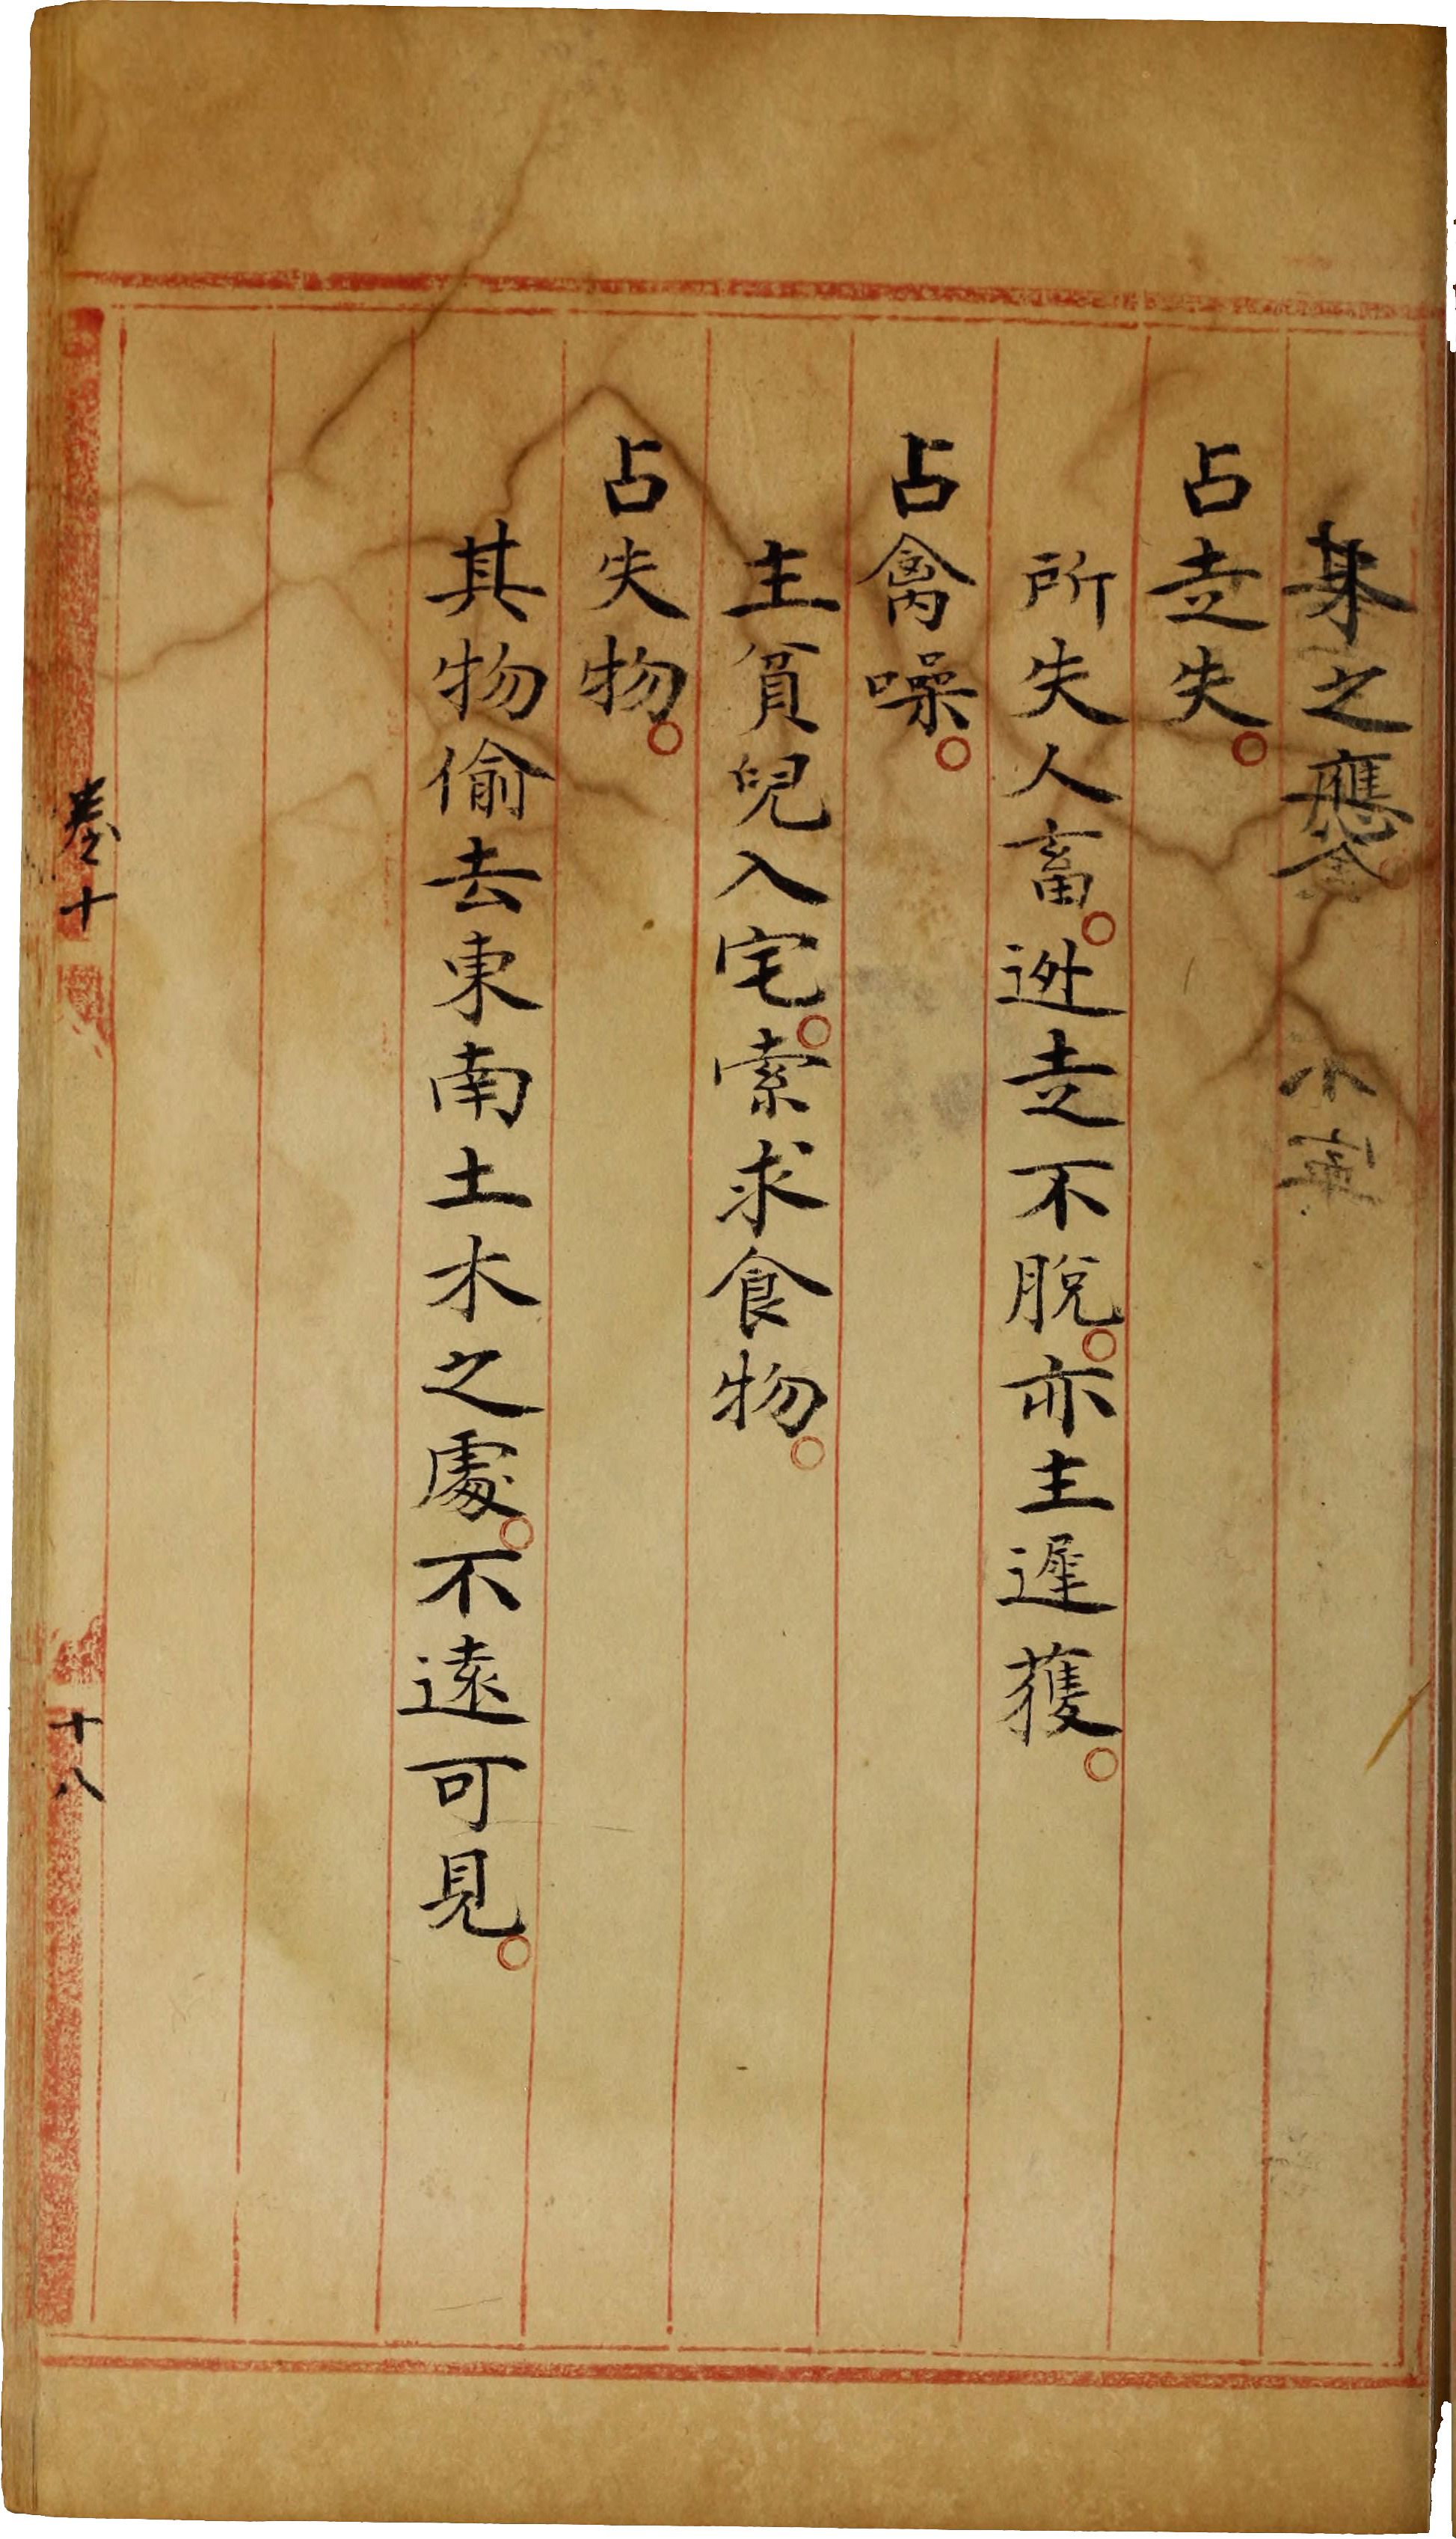 之應
占走失。
所失人畜。逃走不脫。亦主遲獲。
占禽噪。
主貧兒入宅。索求食物。
占失物。
其物偷去東南土木之處。不遠可見。
卷十
十八